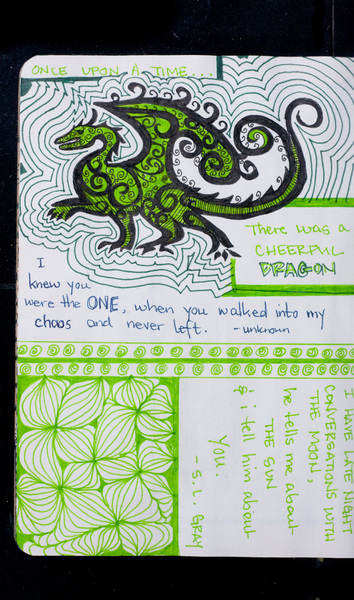 ONCE UPON A TIME...
There was a
CHEERFUL
DRAGON
I
knew you
were the ONE, when you walked into my
chaos and never left. -unknown
I HAVE LATE NIGHT
CONVERSATIONS WITH
THE MOON,
he tells me about
THE SUN
& i tell him about
you.
- S.L. GRAY